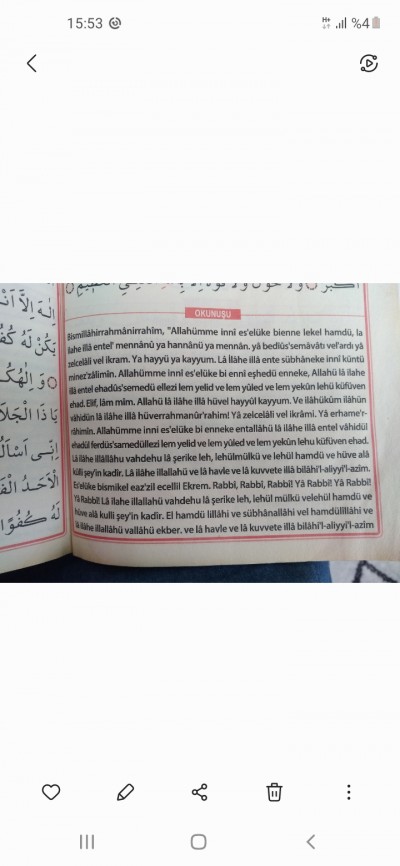 15:53
H+
%4
OKUNUŞU
Bismillâhirrahmânirrahîm, "Allahümme innî es'elüke bienne lekel hamdü, la
ilahe illâ entel' mennânû ya hannânü ya mennân. yâ bedîüs'semâvâti vel'ardı yâ
zelcelâli vel ikram. Ya hayyü ya kayyum. Lâ ilâhe illâ ente sübhâneke inni küntü
minez'zâlimîn. Allahümme innî es'elüke bi ennî eşhedü enneke, Allahü lâ ilahe
illâ entel ehadüs'semedü ellezi lem yelid ve lem yûled ve lem yekûn lehü küfüven
ehad. Elif, lâm mîm. Allahü lâ ilâhe illâ hüvel hayyül kayyum. Ve ilâhüküm ilâhün
vâhidün lâ ilâhe illâ hüverrahmanür'rahim! Yâ zelcelâli vel ikrâmi. Yâ erhame'r-
râhimîn. Allahümme inni es'elüke bi enneke entallâhü lâ ilâhe illâ entel vâhidül
ehadül ferdüs'samedüllezi lem yelid ve lem yûled ve lem yekûn lehu kufüven ehad.
Lâ ilâhe illâllâhu vahdehu lâ şerike leh, lehülmülkü ve lehül hamdü ve hüve alâ
külli şey'in kadîr. Lâ ilâhe illallahü ve lâ havle ve lâ kuvvete illâ bilâhi'l-aliyyi'l-azim.
Es'elüke bismikel eaz'zil ecellil Ekrem. Rabbi, Rabbi, Rabbi! Yâ Rabbi! Yâ Rabbi!
Yâ Rabbi! Lâ ilahe illallahu vahdehu lâ şerike leh, lehül mülkü velehül hamdü ve
hüve alâ kulli şey'in kadîr. El hamdü lillâhi ve sübhânallâhi vel hamdülillâhi ve
lâ ilâhe illallâhü vallâhü ekber. ve lâ havle ve lâ kuvvete illâ bilâhi'l-aliyyi'l-azim